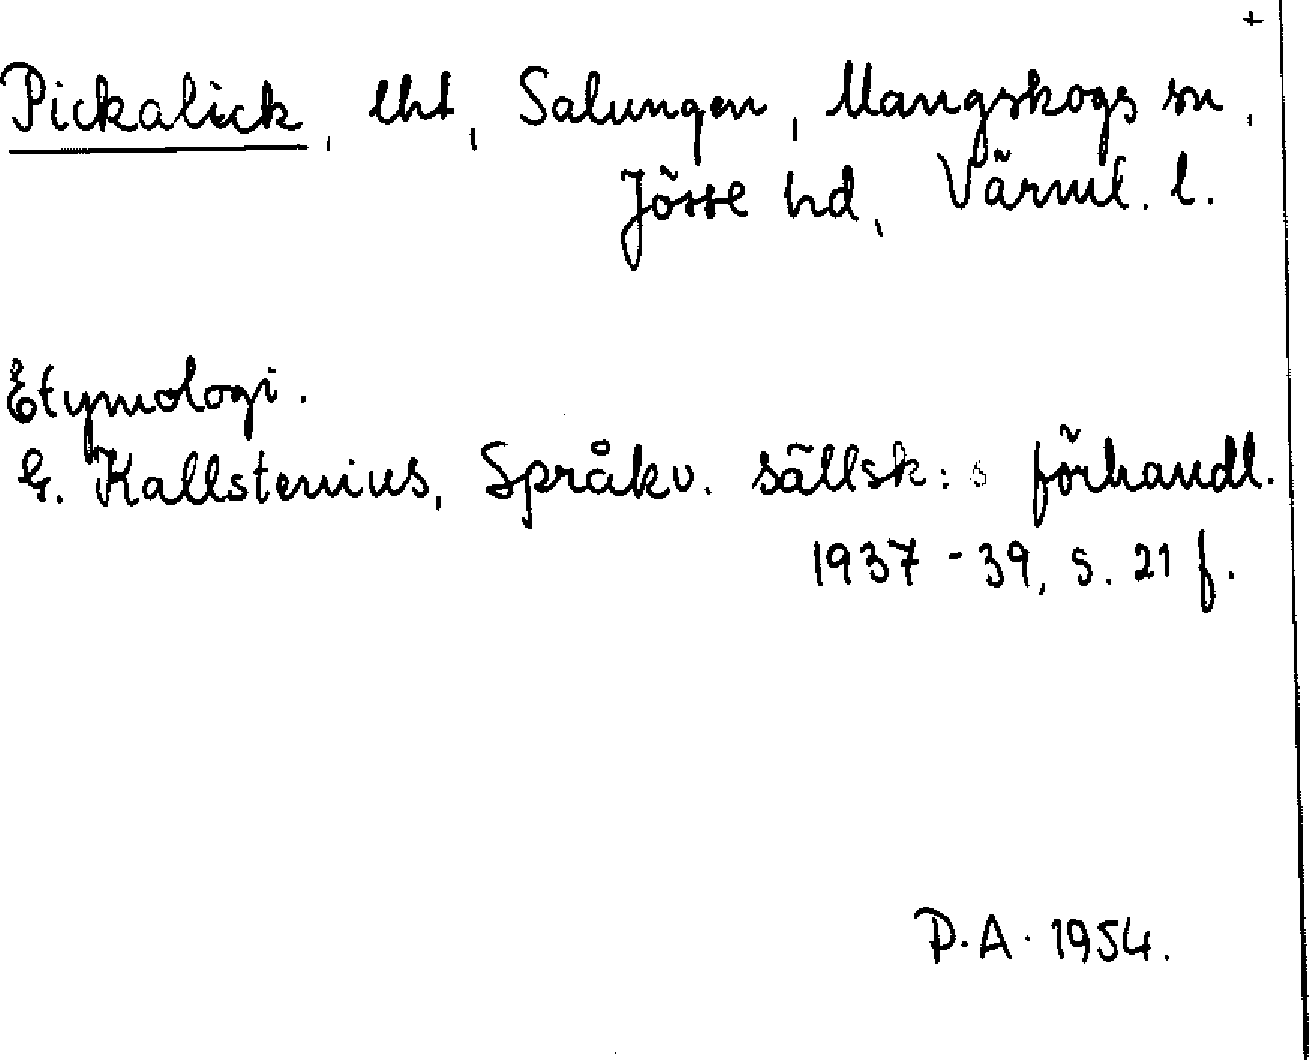 +
Pickalick, lht, Salungen, Mangskogs sn,
Jösse hd, Värml. l.
Etymologi.
G. Kallstenius, Språkv. sällsk:s förhandl.
1937-39, s. 21 f.
P.A. 1954.